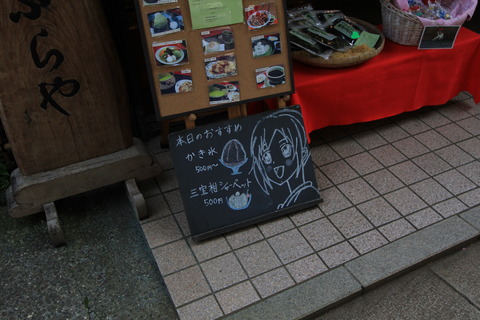 ぷらや
本日のおすすめ
かき氷
500円〜
三宝柑シャーベット
500円